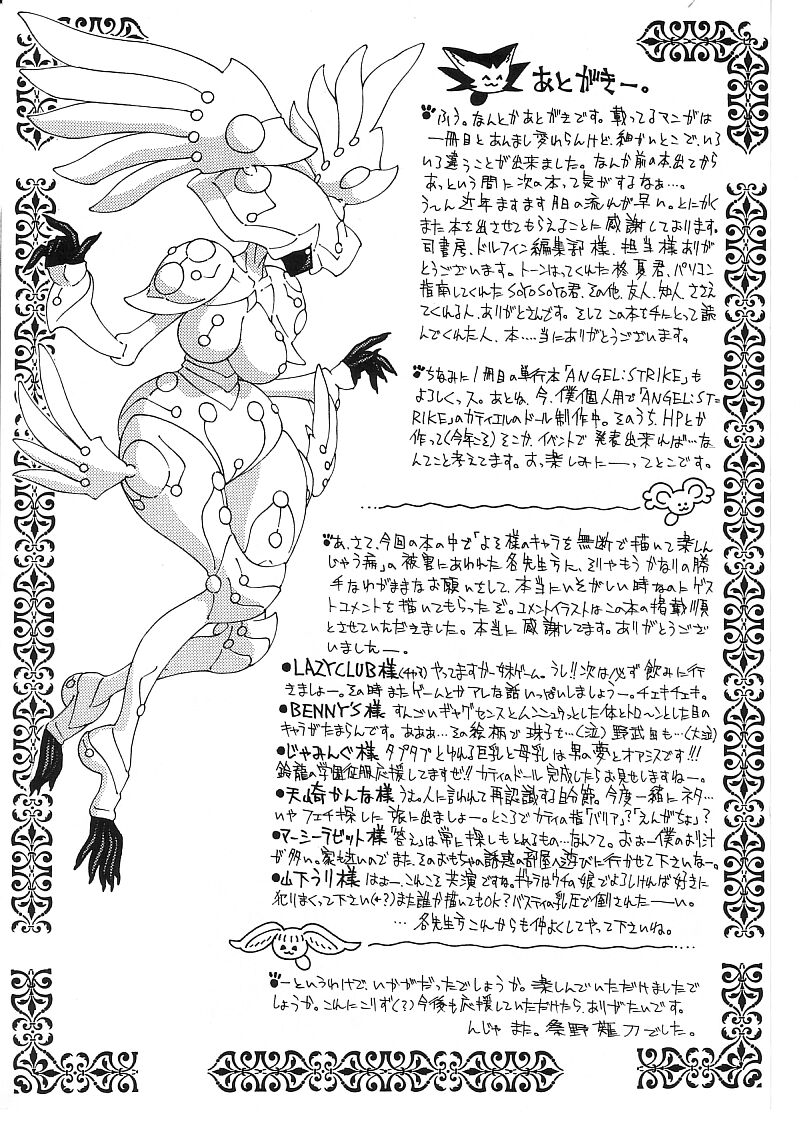 あとがきー。
ふう。なんとかあとがきです。載ってるマンガは
一冊目とあんまし変わらんけど、細かいとこで、いろ
いろ違うことが出来ました。なんか前の本出てから
あっという間に次の本って気がするなぁ…。
う〜ん近年ますます月日の流れが早い。とにかく
また本を出させてもらえることに感謝しております。
司書房、ドルフィン編集部様、担当様ありが
とうございます。トーンはってくれた柊夏君、パソコン
指南してくれたSoYoSoYo君、その他、友人、知人、ささえ
てくれる人、ありがとさんです。そしてこの本を手にとって読
んでくれた人、本…当にありがとうございます。
ちなみに1冊目の単行本「ANGEL:STRIKE」も
よろしくッス。あとね、今、僕個人用で「ANGEL:ST-
RIKE」のカティエルのドール制作中。そのうち、HPとか
作って(今年ころ)そこか、イベントで発表出来れば…な
んてこと考えてます。お楽しみにーってとこです。
あ、さて、今回の本の中で「よそ様のキャラを無断で描いて楽しん
じゃう病」の被害にあわれた各先生方に、そりゃもうかなりの勝
手なわがままなお願いをして、本当にいそがしい時なのにゲス
トコメントを描いてもらったぞ。コメントイラストはこの本の掲載順
とさせていただきました。本当に感謝してます。ありがとうござ
いましたー。
●LAZYCLUB様(チャマ)やってますかー妹ゲーム。うし!!次は必ず飲みに行
きましょー。その時またゲームとかアレな話いっぱいしましょうー。チェキチェキ。
●BENNY'S様 すんごいギャグセンスとムンニュウっとした体とトロ〜ンとした目の
キャラがたまらんです。あああ…その絵柄で 珠ちも…(泣)野武目も…(大泣)
●じゃみんぐ様 タプタプとゆれる巨乳と母乳は男の夢とオアシスです!!!
鈴龍の学園征服応援してますぜ!! カティのドール完成したらお見せしますねー。
●天山奇かんな様 うむ。人に言われて再認識する自分節。今度一緒にネタ…
いやフェチ探しに旅に出ましょー。ところでカティの指「バリア」?「えんがちょ」?
●マーシーラビット様「答え」は常に探しもとめるもの…なんつて。おおー僕のお汁
が多い。家も近いのでまた、そのおもちゃの誘惑の部屋へ遊びに行かせて下さいなー。
●山下うり様 はおー、これこそ共演ですね。キャラはウチの娘でよろしければ好きに
犯りまくって下さい(+?)また誰か描いてもOK?バスティの乳圧で倒されたーい。
… 各先生方これからも仲よくしてやって下さいね。
ーというわけで、いかがだったでしょうか。楽しんでいただけましたで
しょうか。これにこりず(?)今後も応援していただけたら、ありがたいです。
んじゃ また。 でした。